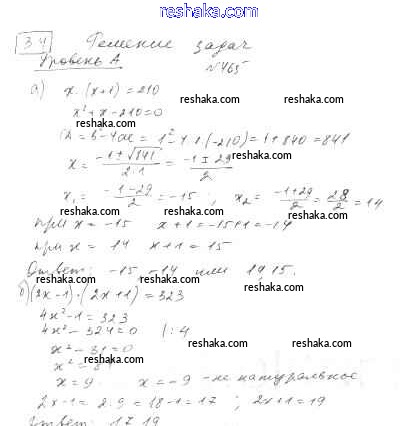 reshaka.com
3.4 Решение задач
Уровень А №465
reshaka.com
а) x·(x+1)=210
reshaka.com reshaka.com
x²+x-210=0
reshaka.com
D=b²-4ac=1²-4·1·(-210)=1+840=841
reshaka.com reshaka.com
x=(-1±√841)/(2·1)=(-1±29)/2
reshaka.com
x₁=(-1-29)/2=-15; x₂=(-1+29)/2=28/2=14
reshaka.com reshaka.com
при x=-15 x+1=-15+1=-14
reshaka.com
при x=14 x+1=15
Ответ: -15, -14 или 14, 15.
reshaka.com reshaka.com
б) (2x-1)·(2x+1)=323
reshaka.com
4x²-1=323
4x²-324=0 |:4
reshaka.com
x²-81=0
reshaka.com reshaka.com
x²=81
x=9 x=-9 - не натуральное
reshaka.com
2x-1=2·9=18-1=17; 2x+1=19
reshaka.com reshaka.com
Ответ: 17, 19